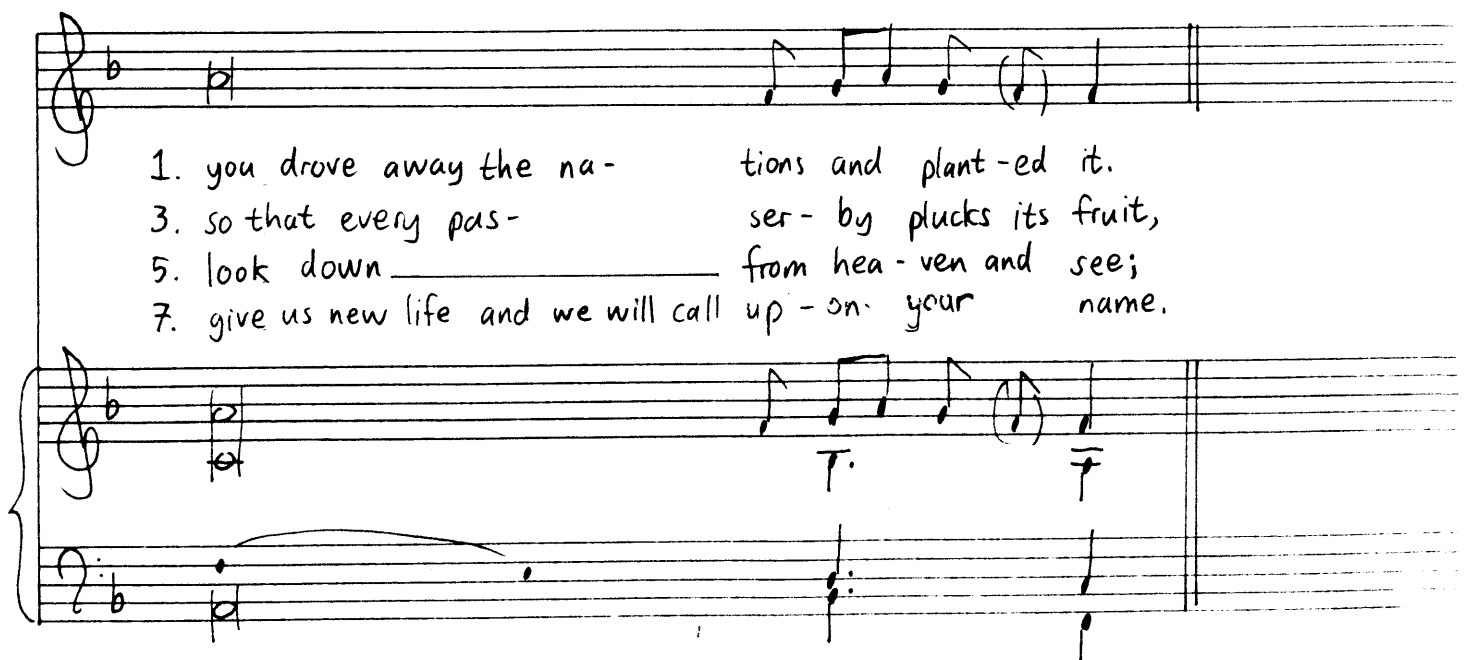 1. you drove away the na- tions and plant-ed it.
3. so that every pas- ser-by plucks its fruit,
5. look down ___ from hea-ven and see;
7. give us new life and we will call up-on your name.